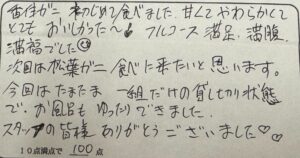 香住ガニ 初じめて食べました。甘くてやわらかくて
とても おいしかった〜 フルコース 満足、満腹、
満福でした☺
次回は松葉ガニ食べに来たいと思います。
今回は たまたま 一組だけの貸しきり状態
で、お風呂も ゆったりできました。
スタッフの皆様 ありがとうございました♡♡
10点満点で 100点